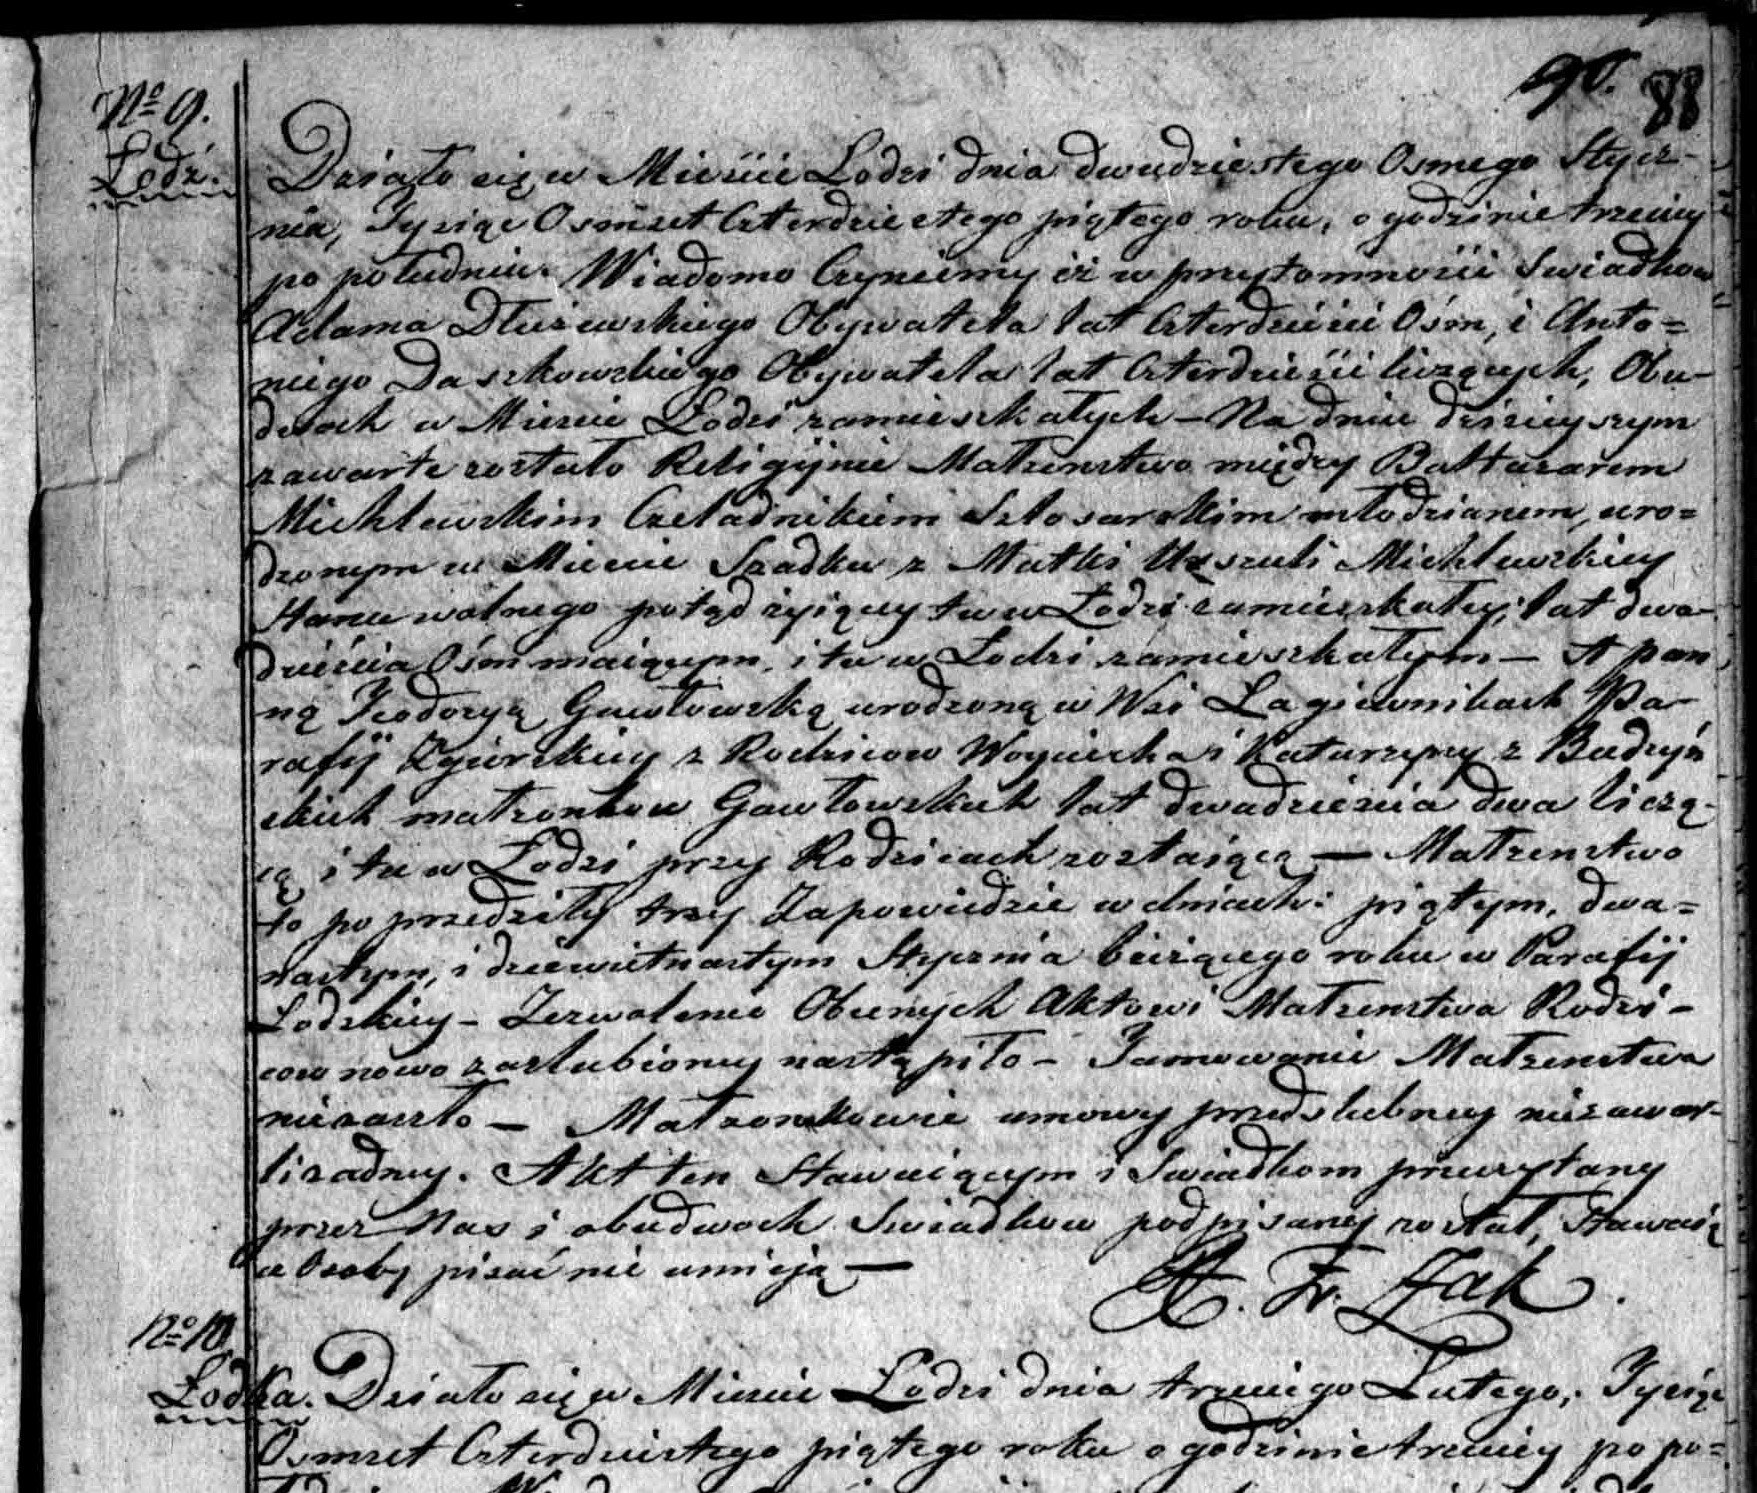 90. 88
No 9.
Łódź.
Działo się w Mieście Łodzi dnia dwudziestego Osmego Stycz-
nia, Tysiąc Osmset Czterdziestego piątego roku, o godzinie trzeciey
po południu. Wiadomo Czyniemy iż w przytomności Swiadków
Adama Dłużewskiego Obywatela lat Czterdzieści Ośm, i Anto=
niego Daszkowskiego Obywatela lat Czterdzieści liczących, Obu-
dwoch w Mieście Łodzi zamieszkałych – Na dniu dzisieyszym
zawarte zostało Religijnie Małżenstwo między Baltazarem
Michlewskim Czeladnikiem Szlosarskim młodzianem, uro=
dzonym w Mieście Szadku z Matki Urszuli Michlewskiey
Stanu wolnego potąd żyiącey tu w Łodzi zamieszkałey; lat dwa-
dzieścia Ośm maiącym, i tu w Łodzi zamieszkałym – A pan
ną Teodozyą Gawłowską urodzoną w Wsi Łagiewnikach Pa-
rafij Zgierskiey z Rodzicow Woyciecha i Katarzyny z Budzyń
skich małżonkow Gawłowskich lat dwadzieścia dwa liczą-
cą i tu w Łodzi przy Rodzicach zostaiącą — Małżenstwo
to poprzedziły trzy Zapowiedzie w dniach: piątym, dwa=
nastym, i dziewietnastym Stycznia bieżącego roku w Parafij
Łodzkiey – Zezwolenie Obecnych Aktowi Małżenstwa Rodzi-
cow nowo zaslubioney nastąpiło – Tamowanie Małżenstwa
niezaszło – Małzonkowie umowy przedslubney niezawar-
li żadney. Akt ten Stawaiącym i Swiadkom przeczytany
przez Nas i obudwoch Swiadkow podpisany został, Stawaią
ce Osoby pisać nie umieją —
X. Fr. Żak
No 10
Łodka. Działo się w Mieście Łodzi dnia trzeciego Lutego, Tysiąc
Osmset Czterdziestego piątego roku o godzinie trzeciey po po=